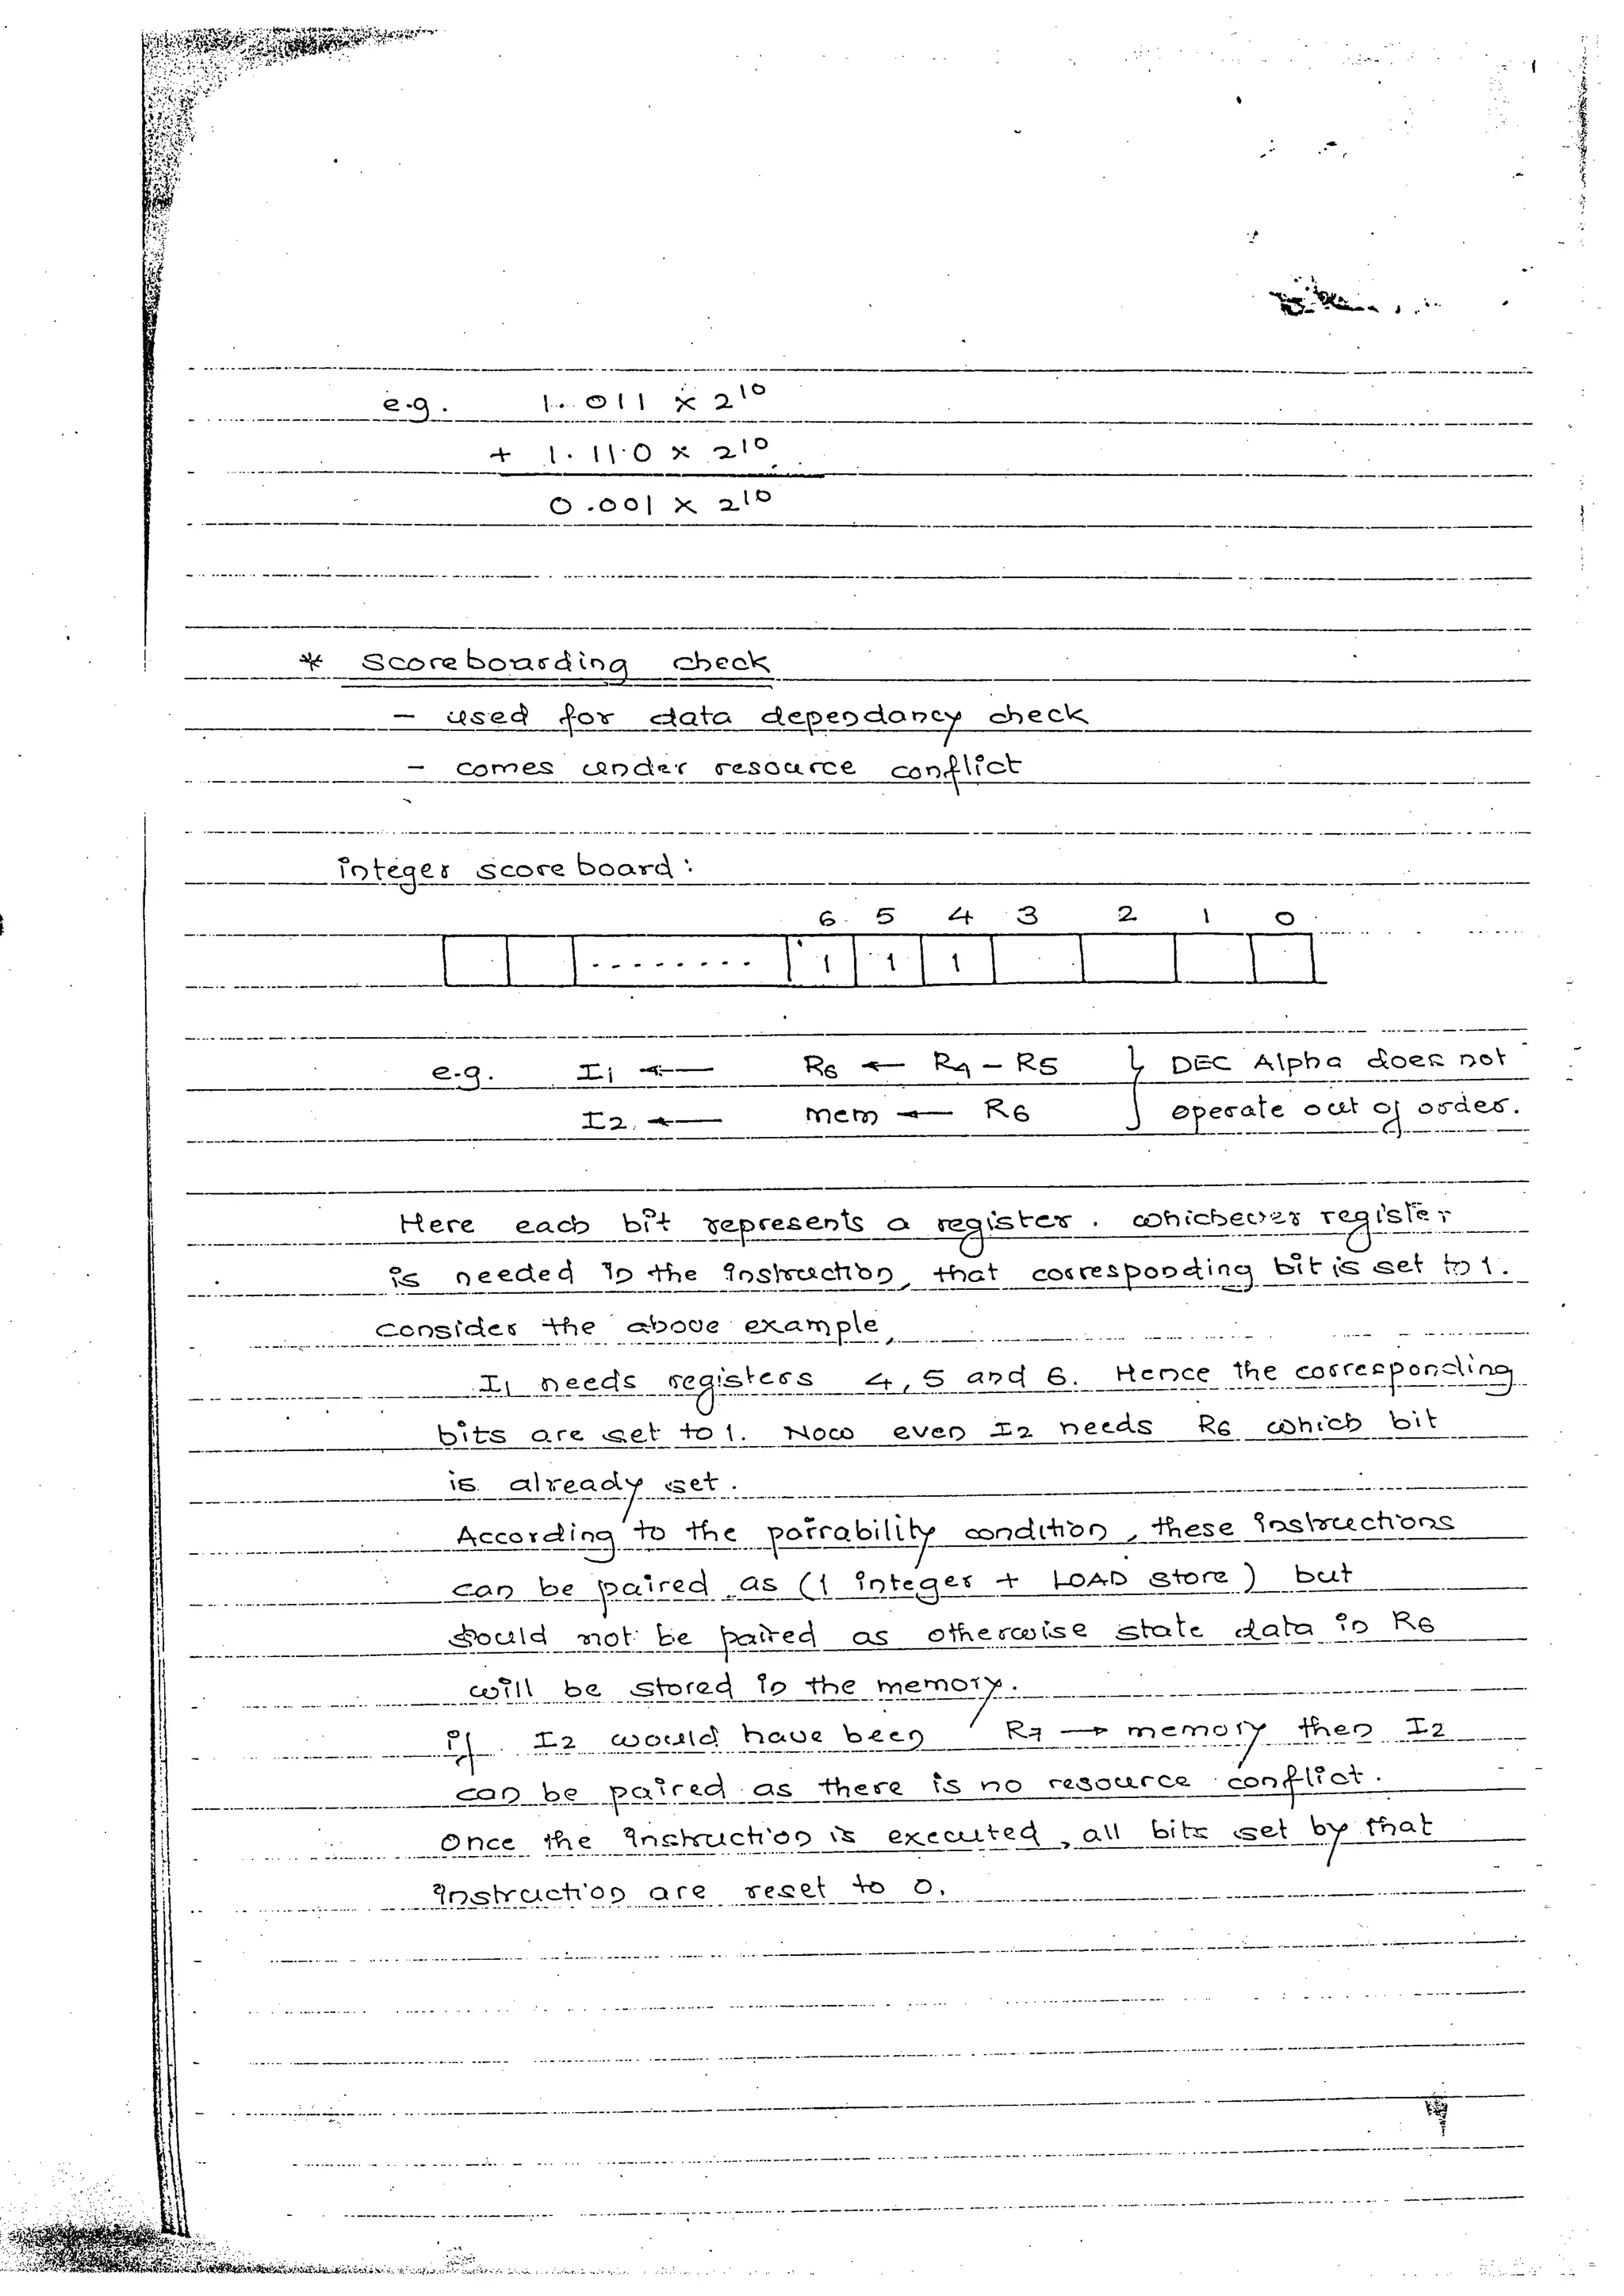 e.g. 1.011 × 2^10
+ 1.110 × 2^10
0.001 × 2^10
* Scoreboarding check
- used for data dependancy check
- comes under resource conflict
integer scoreboard:
6 5 4 3 2 1 0
......... 1 1 1
e.g. I1 ← R6 ← R4 - R5 } DEC Alpha does not
I2 ← mem ← R6 } operate out of order.
Here each bit represents a register. whichever register
is needed in the instruction, that corresponding bit is set to 1.
consider the above example,
I1 needs registers 4, 5 and 6. Hence the corresponding
bits are set to 1. Now even I2 needs R6 which bit
is already set.
According to the pairability condition, these instructions
can be paired as (1 integer + LOAD store) but
sould not be paired as otherwise state data in R6
will be stored in the memory.
if I2 would have been R7 → memory then I2
can be paired as there is no resource conflict.
Once the instruction is executed, all bits set by that
instruction are reset to 0.